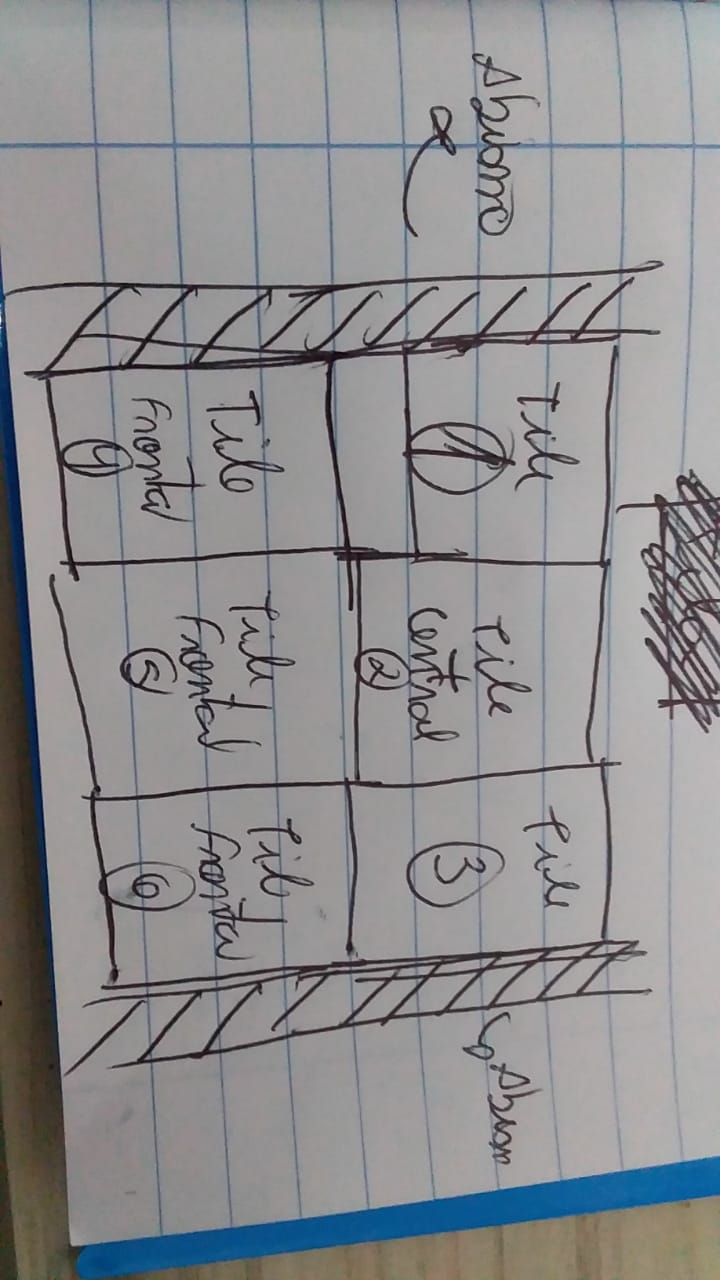 Abismo
Tile
1
Tile
Central
2
Tile
3
Tile
Frontal
4
Tile
Frontal
5
Tile
frontal
6